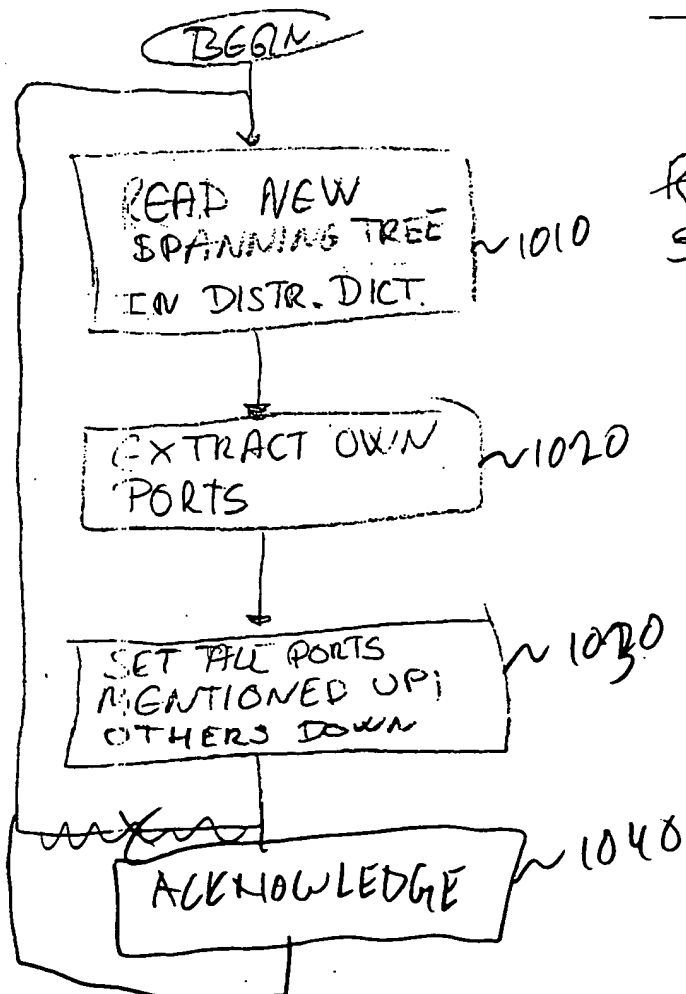 BEGIN
READ NEW
SPANNING TREE
IN DISTR. DICT.
~1010
EXTRACT OWN
PORTS
~1020
SET ALL PORTS
MENTIONED UP;
OTHERS DOWN
~1030
ACKNOWLEDGE
~1040